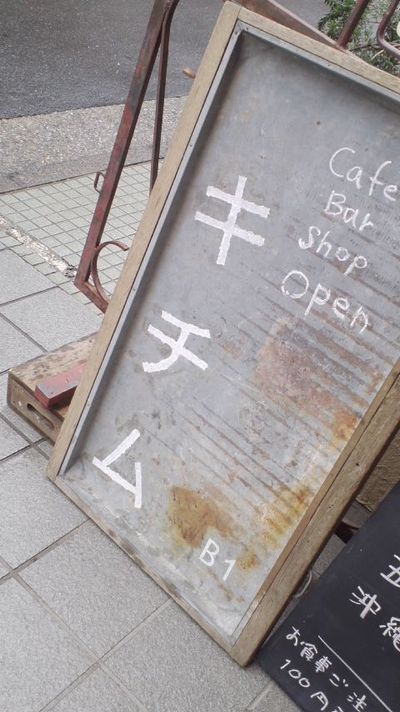 キチム
Cafe
Bar
Shop
Open
B1
五
沖縄
お食事ご注
100円